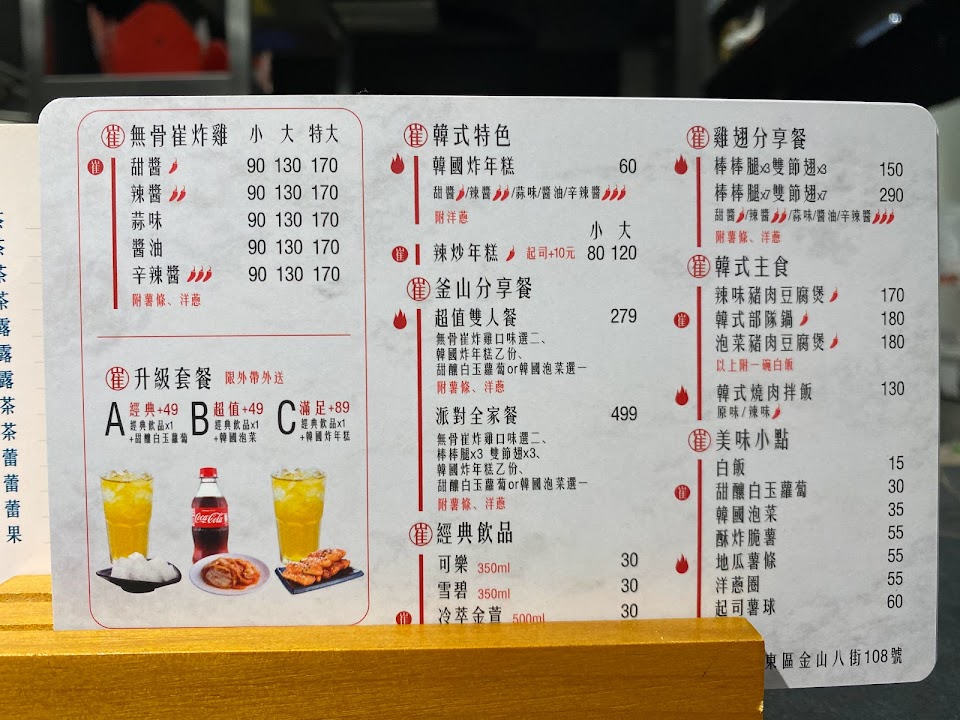 茶
茶
茶
茶
露
露
露
茶
茶
蕾
蕾
蕾
果
崔 無骨崔炸雞 小 大 特大
崔 甜醬 90 130 170
辣醬 90 130 170
蒜味 90 130 170
醬油 90 130 170
辛辣醬 90 130 170
附薯條、洋蔥
崔 升級套餐 限外帶外送
A 經典+49
經典飲品x1
+甜釀白玉蘿蔔
B 超值+49
經典飲品x1
+韓國泡菜
C 滿足+89
經典飲品x1
+韓國炸年糕
Coca-Cola
崔 韓式特色
韓國炸年糕 60
甜醬/辣醬/蒜味/醬油/辛辣醬
附洋蔥
小 大
崔 辣炒年糕 起司+10元 80 120
崔 釜山分享餐
超值雙人餐 279
無骨崔炸雞口味選二、
韓國炸年糕乙份、
甜釀白玉蘿蔔or韓國泡菜選一
附薯條、洋蔥
派對全家餐 499
無骨崔炸雞口味選二、
棒棒腿x3 雙節翅x3、
韓國炸年糕乙份、
甜釀白玉蘿蔔or韓國泡菜選一
附薯條、洋蔥
崔 經典飲品
可樂 350ml 30
雪碧 350ml 30
崔 冷萃金萱 500ml 30
崔 雞翅分享餐
棒棒腿x3雙節翅x3 150
棒棒腿x7雙節翅x7 290
甜醬/辣醬/蒜味/醬油/辛辣醬
附薯條、洋蔥
崔 韓式主食
辣味豬肉豆腐煲 170
崔 韓式部隊鍋 180
泡菜豬肉豆腐煲 180
以上附一碗白飯
韓式燒肉拌飯 130
原味/辣味
崔 美味小點
白飯 15
崔 甜釀白玉蘿蔔 30
韓國泡菜 35
酥炸脆薯 55
地瓜薯條 55
洋蔥圈 55
起司薯球 60
東區金山八街108號